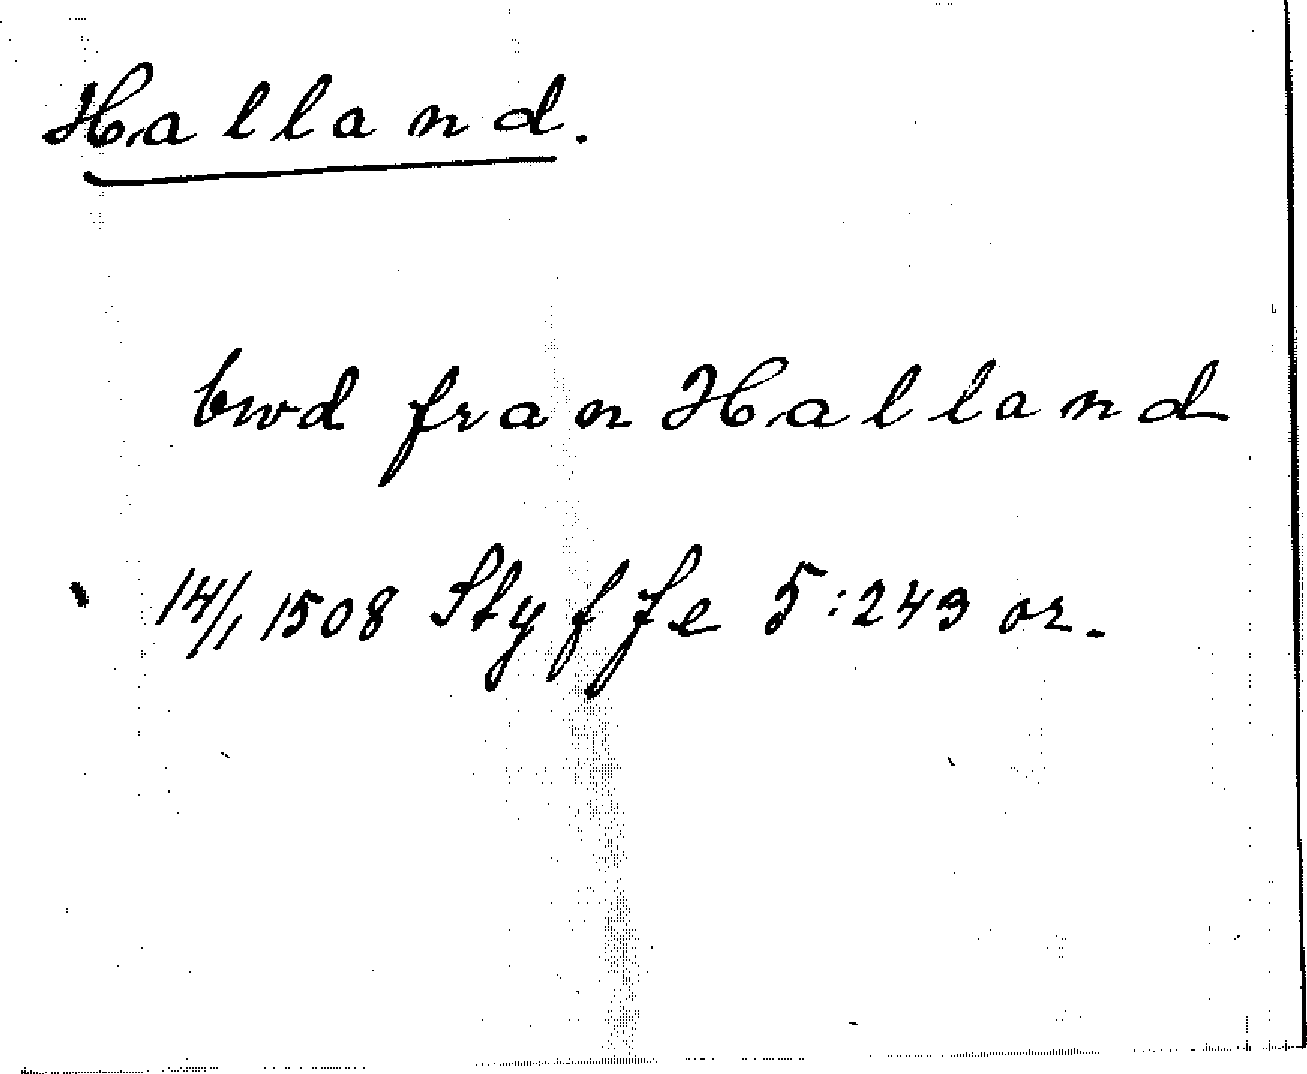 Halland.
bwd fran Halland
14/1 1508 Styffe 5:249 or.